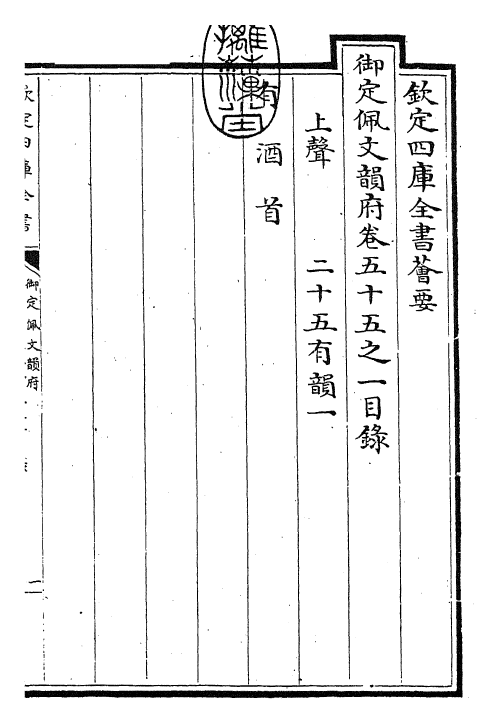 欽定四庫全書薈要
御定佩文韻府卷五十五之一目錄
上聲 二十五有韻一
有 酒 首
欽定四庫全書
御定佩文韻府